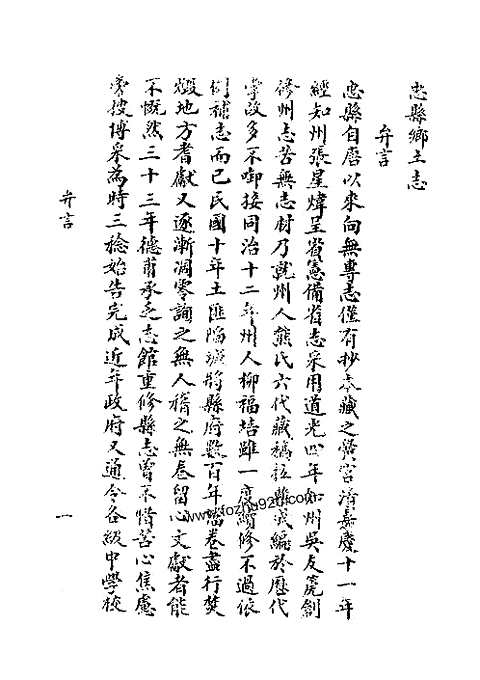 忠縣鄉土志
弁言
忠縣自唐以來向無專志僅有抄本藏之黌宮清嘉慶十一年
經知州張星煒呈省憲備省志采用道光四年知州吳友篪創
修州志苦無志材乃就州人熊氏六代藏稿拉雜成編於歷代
掌故多不啣接同治十二年州人柳福培雖一度續修不過依
例補志而已民國十年土匪陷城將縣府數百年檔卷盡行焚
燬地方耆獻又逐漸凋零誦之無人稽之無卷留心文獻者能
不慨然三十三年德甫承乏志館重修縣志曾不惜苦心焦慮
旁搜博采為時三稔始告完成近年政府又通令各級中學校
弁言
一
www.fozhu920.com